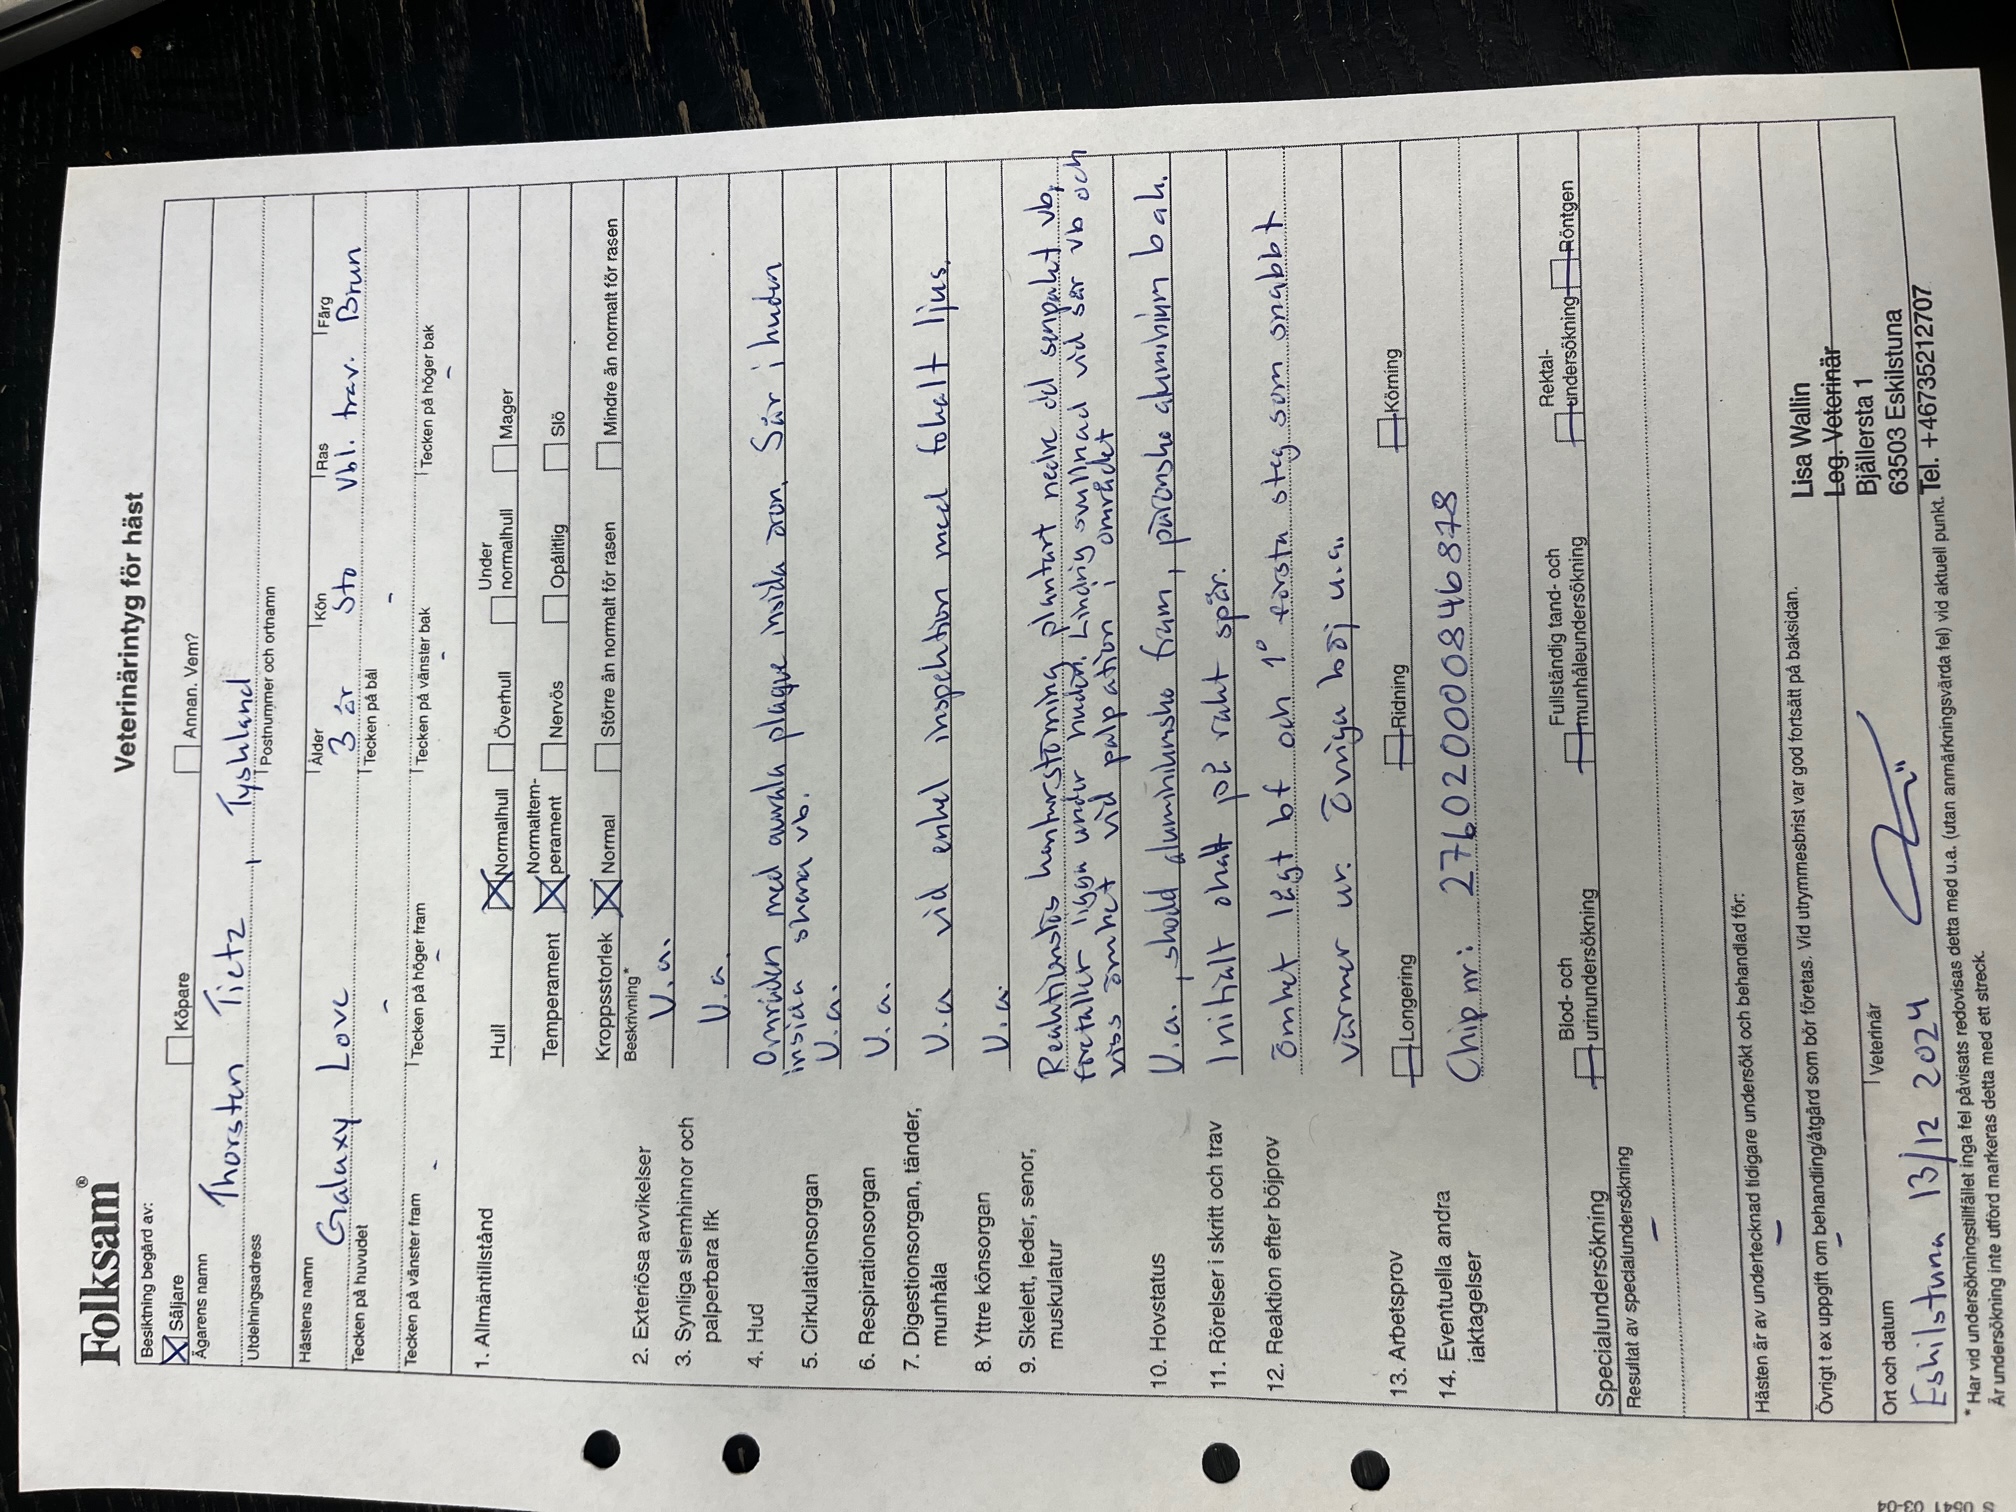 Folksam®
Veterinärintyg för häst
Besiktning begärd av:
Säljare Köpare Annan. Vem?
Ägarens namn
Thorsten Tietz, Tyskland
Utdelningsadress Postnummer och ortnamn
Hästens namn Ålder Kön Ras Färg
Galaxy Love 3 år Sto Vbl. trav. Brun
Tecken på huvudet Tecken på bål
- -
Tecken på vänster fram Tecken på höger fram Tecken på vänster bak Tecken på höger bak
- - - -
1. Allmäntillstånd Hull Normalhull Överhull Under normalhull Mager
Temperament Normaltemperament Nervös Opålitlig Slö
Kroppsstorlek Normal Större än normalt för rasen Mindre än normalt för rasen
Beskrivning*
2. Exteriösa avvikelser U.a.
3. Synliga slemhinnor och U.a.
palperbara lfk
4. Hud Områden med aurala plaque insida öron. Sår i huden
insida skena vb.
5. Cirkulationsorgan U.a.
6. Respirationsorgan U.a.
7. Digestionsorgan, tänder, U.a vid enkel inspektion med lokalt ljus.
munhåla
8. Yttre könsorgan U.a.
9. Skelett, leder, senor, Reaktionslös konturstörning plantart nedre del senpaket vb,
muskulatur förefaller ligga under huden. Lindrig svullnad vid sår vb och
viss ömhet vid palpation i området
10. Hovstatus U.a., skodd aluminiumsko fram, päronsko aluminium bak.
11. Rörelser i skritt och trav Initialt ohalt på rakt spår.
12. Reaktion efter böjprov Ömhet lågt bf och 1° första steg som snabbt
värmer ur. Övriga böj u.a.
13. Arbetsprov Longering Ridning Körning
14. Eventuella andra Chipnr: 276020000846878
iaktagelser
Specialundersökning Blod- och urinundersökning Fullständig tand- och munhåleundersökning Rektalundersökning Röntgen
Resultat av specialundersökning
-
Hästen är av undertecknad tidigare undersökt och behandlad för:
-
Övrigt t ex uppgift om behandling/åtgärd som bör företas. Vid utrymmesbrist var god fortsätt på baksidan.
-
Lisa Wallin
Leg. Veterinär
Bjällersta 1
63503 Eskilstuna
Tel. +46735212707
Ort och datum Veterinär
Eskilstuna 13/12 2024
* Har vid undersökningstillfället inga fel påvisats redovisas detta med u.a. (utan anmärkningsvärda fel) vid aktuell punkt.
Är undersökning inte utförd markeras detta med ett streck.